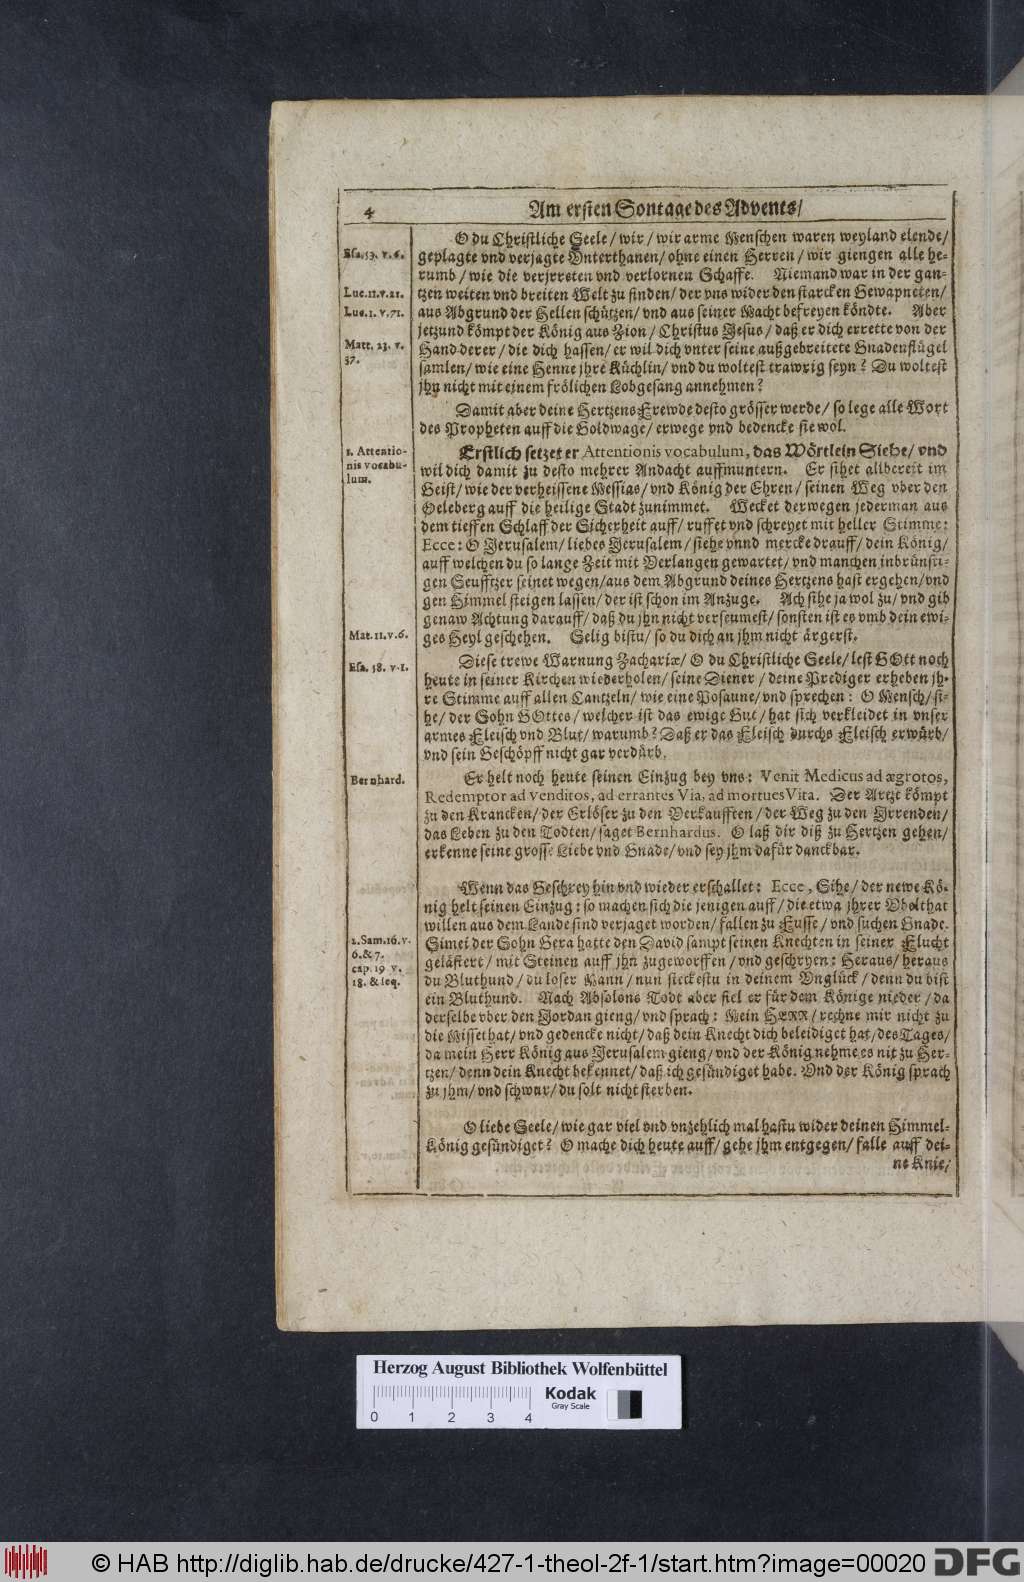 4
Am ersten Sontage des Advents/
O du Christliche Seele/ wir/ wir arme Menschen waren weyland elende/
Esa. 53. v. 6.
geplagte vnd verjagte Vnterthanen/ ohne einen Herren/ wir giengen alle he-
rumb/ wie die verjrreten vnd verlornen Schaffe. Niemand war in der gan-
Luc. 11. v. 21.
tzen weiten vnd breiten Welt zu finden/ der vns wider den starcken Gewapneten/
Luc. 1. v. 71.
aus Abgrund der Hellen schützen/ vnd aus seiner Macht befreyen köndte. Aber
jetzund kömpt der König aus Zion/ Christus Jesus/ daß er dich errette von der
Matt. 23. v.
37.
Hand derer/ die dich hassen/ er wil dich vnter seine außgebreitete Gnadenflügel
samlen/ wie eine Henne jhre Küchlin/ vnd du woltest trawrig seyn? Du woltest
jhn nicht mit einem frölichen Lobgesang annehmen?
Damit aber deine Hertzens Frewde desto grösser werde/ so lege alle Wort
des Propheten auff die Goldwage/ erwege vnd bedencke sie wol.
1. Attentio-
nis vocabu-
lum.
Erstlich setzet er Attentionis vocabulum, das Wörtlein Siehe/ vnd
wil dich damit zu desto mehrer Andacht auffmuntern. Er sihet allbereit im
Geist/ wie der verheissene Messias/ vnd König der Ehren/ seinen Weg vber den
Oeleberg auff die heilige Stadt zunimmet. Wecket derwegen jederman aus
dem tieffen Schlaff der Sicherheit auff/ ruffet vnd schreyet mit heller Stimme:
Ecce: O Jerusalem/ liebes Jerusalem/ siehe vnnd mercke drauff/ dein König/
auff welchen du so lange Zeit mit Verlangen gewartet/ vnd manchen inbrünsti-
gen Seufftzer seinet wegen/ aus dem Abgrund deines Hertzens hast ergehen/ vnd
gen Himmel steigen lassen/ der ist schon im Anzuge. Ach sihe ja wol zu/ vnd gib
genaw Achtung darauff/ daß du jhn nicht verseumest/ sonsten ist es vmb dein ewi-
Mat. 11. v. 6.
ges Heyl geschehen. Selig bistu/ so du dich an jhm nicht ärgerst.
Esa. 58. v. 1.
Diese trewe Warnung Zachariæ/ O du Christliche Seele/ lest GOtt noch
heute in seiner Kirchen wiederholen/ seine Diener/ deine Prediger erheben jh-
re Stimme auff allen Cantzeln/ wie eine Posaune/ vnd sprechen: O Mensch/ si-
he/ der Sohn GOttes/ welcher ist das ewige Gut/ hat sich verkleidet in vnser
armes Fleisch vnd Blut/ warumb? Daß er das Fleisch durchs Fleisch erwürb/
vnd sein Geschöpff nicht gar verdürb.
Bernhard.
Er helt noch heute seinen Einzug bey vns: Venit Medicus ad ægrotos,
Redemptor ad venditos, ad errantes Via, ad mortues Vita. Der Artzt kömpt
zu den Krancken/ der Erlöser zu den Verkaufften/ der Weg zu den Irrenden/
das Leben zu den Todten/ saget Bernhardus. O laß dir diß zu Hertzen gehen/
erkenne seine grosse Liebe vnd Gnade/ vnd sey jhm dafür danckbar.
Wenn das Geschrey hin vnd wieder erschallet: Ecce, Sihe/ der newe Kö-
nig helt seinen Einzug: so machen sich die jenigen auff/ die etwa jhrer Vbelthat
willen aus dem Lande sind verjaget worden/ fallen zu Fusse/ vnd suchen Gnade.
2. Sam. 16. v.
6. & 7.
cap. 19 v.
18. & seq.
Simei der Sohn Gera hatte den David sampt seinen Knechten in seiner Flucht
gelästert/ mit Steinen auff jhn zugeworffen/ vnd geschryen: Heraus/ heraus
du Bluthund/ du loser Mann/ nun steckestu in deinem Vnglück/ denn du bist
ein Bluthund. Nach Absolons Todt aber fiel er für dem Könige nieder/ da
derselbe vber den Jordan gieng/ vnd sprach: Mein HERR/ rechne mir nicht zu
die Missethat/ vnd gedencke nicht/ daß dein Knecht dich beleidiget hat/ des Tages/
da mein Herr König aus Jerusalem gieng/ vnd der König nehme es nit zu Her-
tzen/ denn dein Knecht bekennet/ daß ich gesündiget habe. Vnd der König sprach
zu jhm/ vnd schwur/ du solt nicht sterben.
O liebe Seele/ wie gar viel vnd vnzehlich mal hastu wider deinen Himmel-
König gesündiget? O mache dich heute auff/ gehe jhm entgegen/ falle auff dei-
ne Knie/
Herzog August Bibliothek Wolfenbüttel
0 1 2 3 4
Kodak
Gray Scale
© HAB http://diglib.hab.de/drucke/427-1-theol-2f-1/start.htm?image=00020
DFG